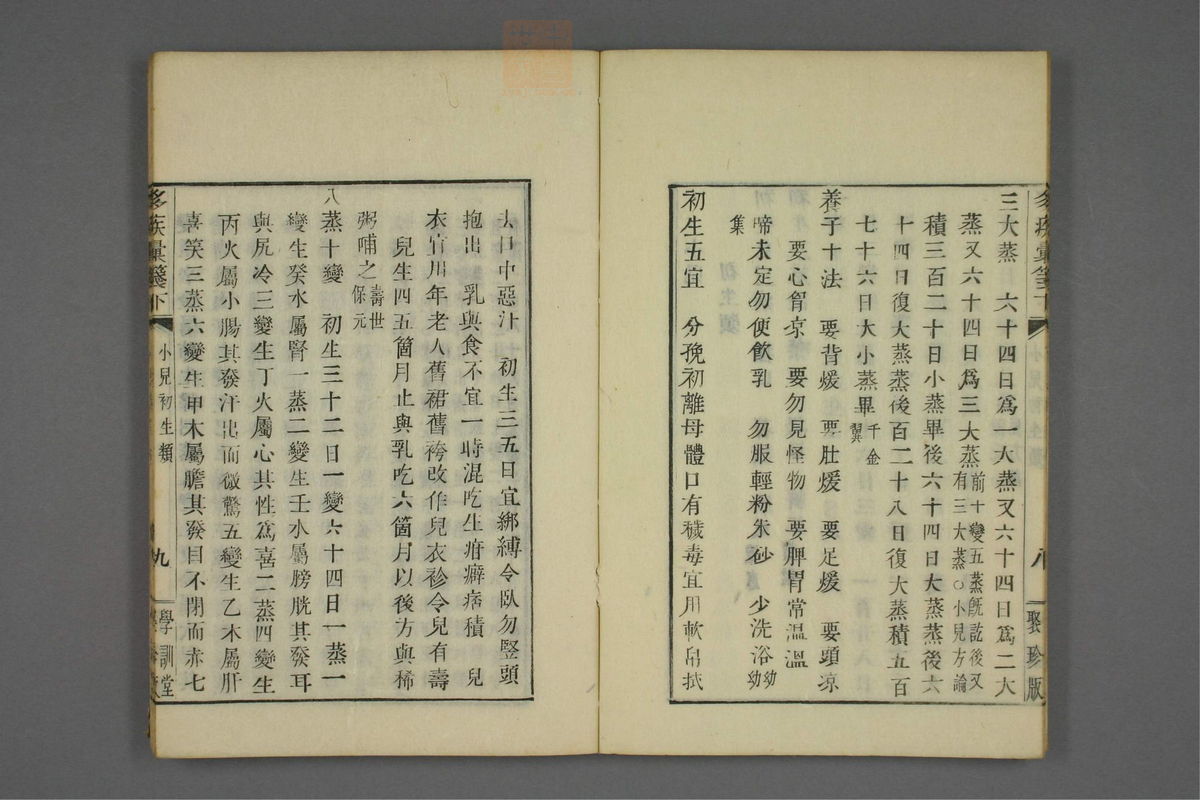 三大蒸　六十四日爲一大蒸又六十四日爲二大
蒸又六十四日爲三大蒸前十變五蒸旣訖後又有三大蒸○小兒方論
積三百二十日小蒸畢後六十四日大蒸蒸後六
十四日復大蒸蒸後百二十八日復大蒸積五百
七十六日大小蒸畢千金翼
養子十法　要背煖　要肚煖　要足煖　要頭凉
要心胷凉　要勿見怪物　要脾胃常温温
啼未定勿便飲乳　勿服輕粉朱砂　少洗浴幼幼
集
初生五宜　分娩初離母體口有穢毒宜用軟帛拭
去口中惡汁　初生三五日宜綁縛令臥勿竪頭
抱出　乳與食不宜一時混吃生疳癖痞積　兒
衣宜用年老人舊裙舊袴改作兒衣衫令兒有壽
兒生四五箇月止與乳吃六箇月以後方與稀
粥哺之壽世保元
八蒸十變　初生三十二日一變六十四日一蒸一
變生癸水屬腎一蒸二變生壬水屬膀胱其發耳
與尻冷三變生丁火屬心其性爲喜二蒸四變生
丙火屬小腸其發汗出而微驚五變生乙木屬肝
喜笑三蒸六變生甲木屬膽其發目不閉而赤七
彙箋下
小兒初生類
八
聚珍版
彙箋下
小兒初生類
九
學訓堂